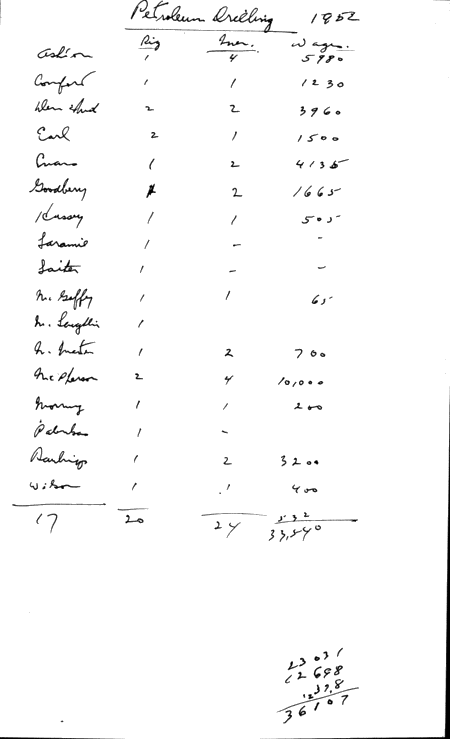 Petroleum Drilling 1952
Rig Men. Wages.
Ashton 1 4 5980
Comfort 1 1 1230
2 2 3960
Earl 2 1 1500
Evans 1 2 4135
Goodberry 1 2 1665
Hussey 1 1 505
Laramie 1 - -
Laiter 1 - -
Mc Guffy 1 1 65
Mc Laughlin 1
1 2 700
Mc Pherson 2 4 10,000
Morning 1 1 200
1 -
Rawlings 1 2 3200
Wilson 1 1 400
532
17 20 24 33,540
23031
12698
36107